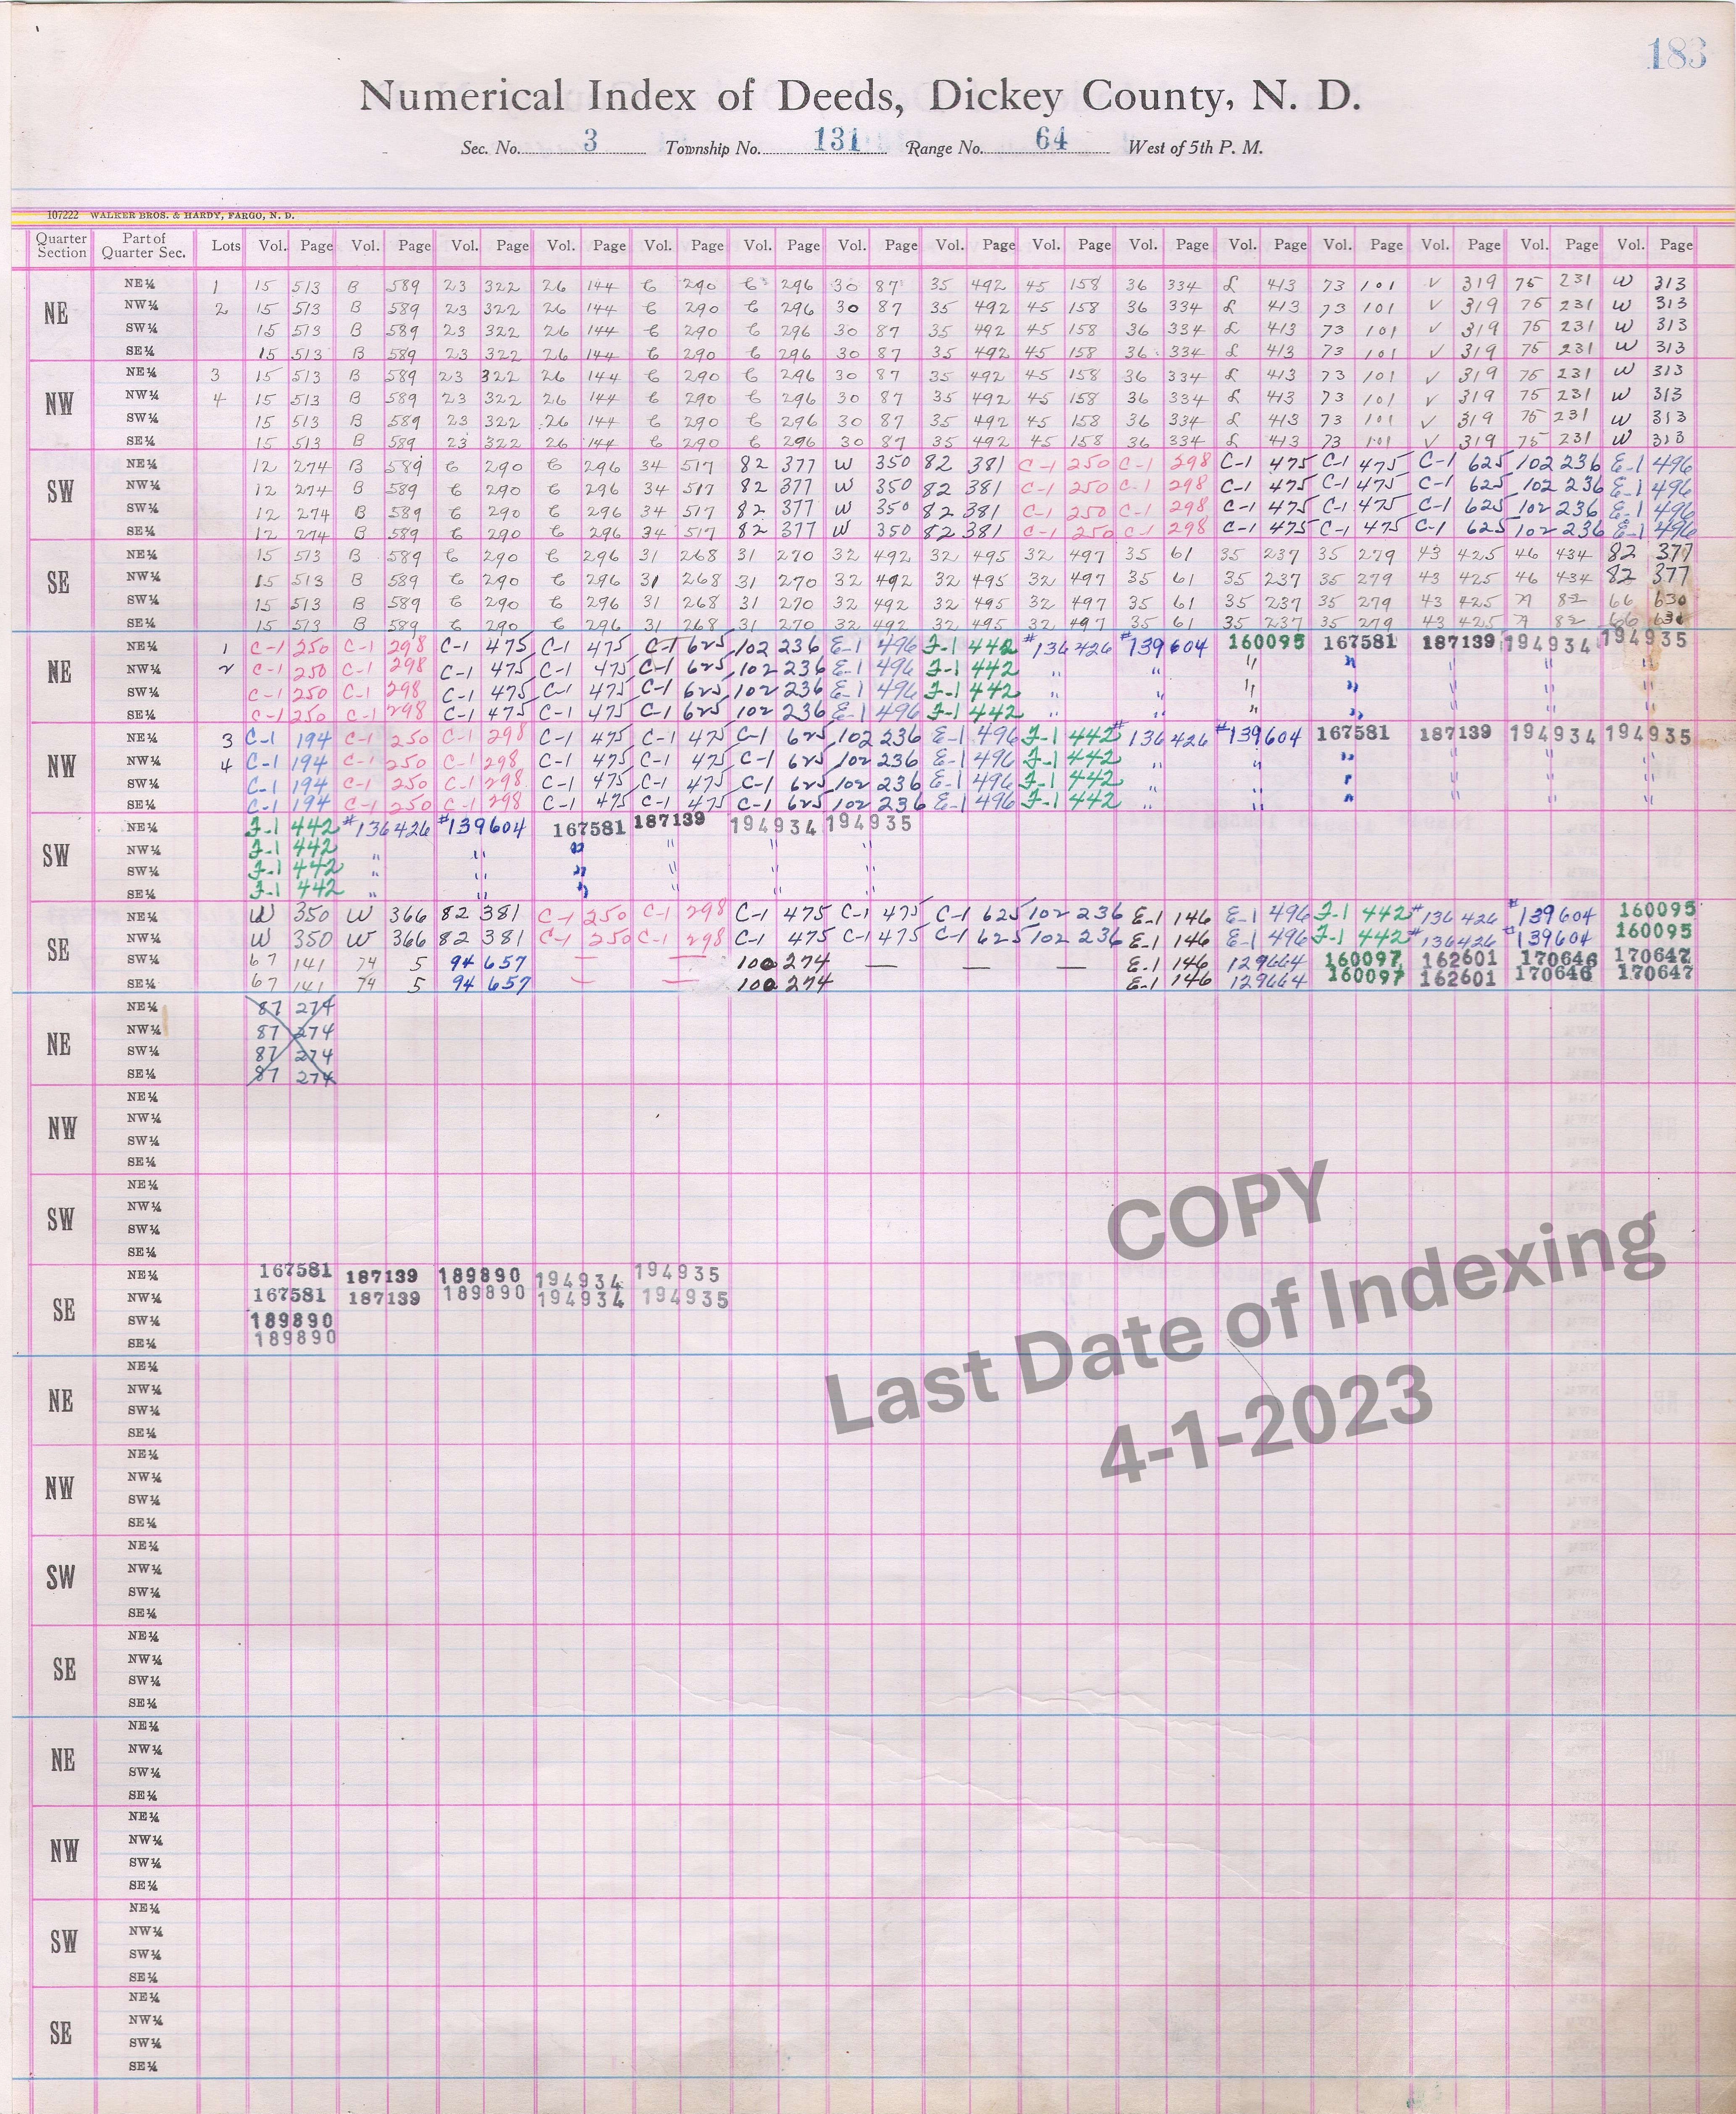 183
Numerical Index of Deeds, Dickey County, N. D.
Sec. No. 3 Township No. 131 Range No. 64 West of 5th P. M.
107222 WALKER BROS. & HARDY, FARGO, N. D.
Quarter Section Part of Quarter Sec. Lots Vol. Page Vol. Page Vol. Page Vol. Page Vol. Page Vol. Page Vol. Page Vol. Page Vol. Page Vol. Page Vol. Page Vol. Page Vol. Page Vol. Page Vol. Page
NE
NE¼ 1 15 513 B 589 23 322 26 144 C 290 C 296 30 87 35 492 45 158 36 334 L 413 73 101 V 319 75 231 W 313
NW¼ 2 15 513 B 589 23 322 26 144 C 290 C 296 30 87 35 492 45 158 36 334 L 413 73 101 V 319 75 231 W 313
SW¼ 15 513 B 589 23 322 26 144 C 290 C 296 30 87 35 492 45 158 36 334 L 413 73 101 V 319 75 231 W 313
SE¼ 15 513 B 589 23 322 26 144 C 290 C 296 30 87 35 492 45 158 36 334 L 413 73 101 V 319 75 231 W 313
NW
NE¼ 3 15 513 B 589 23 322 26 144 C 290 C 296 30 87 35 492 45 158 36 334 L 413 73 101 V 319 75 231 W 313
NW¼ 4 15 513 B 589 23 322 26 144 C 290 C 296 30 87 35 492 45 158 36 334 L 413 73 101 V 319 75 231 W 313
SW¼ 15 513 B 589 23 322 26 144 C 290 C 296 30 87 35 492 45 158 36 334 L 413 73 101 V 319 75 231 W 313
SE¼ 15 513 B 589 23 322 26 144 C 290 C 296 30 87 35 492 45 158 36 334 L 413 73 101 V 319 75 231 W 313
SW
NE¼ 12 274 B 589 C 290 C 296 34 517 82 377 W 350 82 381 C-1 250 C-1 298 C-1 475 C-1 475 C-1 625 102 236 E-1 496
NW¼ 12 274 B 589 C 290 C 296 34 517 82 377 W 350 82 381 C-1 250 C-1 298 C-1 475 C-1 475 C-1 625 102 236 E-1 496
SW¼ 12 274 B 589 C 290 C 296 34 517 82 377 W 350 82 381 C-1 250 C-1 298 C-1 475 C-1 475 C-1 625 102 236 E-1 496
SE¼ 12 274 B 589 C 290 C 296 34 517 82 377 W 350 82 381 C-1 250 C-1 298 C-1 475 C-1 475 C-1 625 102 236 E-1 496
SE
NE¼ 15 513 B 589 C 290 C 296 31 268 31 270 32 492 32 495 32 497 35 61 35 237 35 279 43 425 46 434 82 377
NW¼ 15 513 B 589 C 290 C 296 31 268 31 270 32 492 32 495 32 497 35 61 35 237 35 279 43 425 46 434 82 377
SW¼ 15 513 B 589 C 290 C 296 31 268 31 270 32 492 32 495 32 497 35 61 35 237 35 279 43 425 A 82 66 630
SE¼ 15 513 B 589 C 290 C 296 31 268 31 270 32 492 32 495 32 497 35 61 35 237 35 279 43 425 A 82 66 630
NE
NE¼ 1 C-1 250 C-1 298 C-1 475 C-1 475 C-1 625 102 236 E-1 496 F-1 442 #136426 #139604 160095 167581 187139 194934 194935
NW¼ 2 C-1 250 C-1 298 C-1 475 C-1 475 C-1 625 102 236 E-1 496 F-1 442 " " " " " " "
SW¼ C-1 250 C-1 298 C-1 475 C-1 475 C-1 625 102 236 E-1 496 F-1 442 " " " " " " "
SE¼ C-1 250 C-1 298 C-1 475 C-1 475 C-1 625 102 236 E-1 496 F-1 442 " " " " " " "
NW
NE¼ 3 C-1 194 C-1 250 C-1 298 C-1 475 C-1 475 C-1 625 102 236 E-1 496 F-1 442 #136426 #139604 167581 187139 194934 194935
NW¼ 4 C-1 194 C-1 250 C-1 298 C-1 475 C-1 475 C-1 625 102 236 E-1 496 F-1 442 " " " " " "
SW¼ C-1 194 C-1 250 C-1 298 C-1 475 C-1 475 C-1 625 102 236 E-1 496 F-1 442 " " " " " "
SE¼ C-1 194 C-1 250 C-1 298 C-1 475 C-1 475 C-1 625 102 236 E-1 496 F-1 442 " " " " " "
SW
NE¼ F-1 442 #136426 #139604 167581 187139 194934 194935
NW¼ F-1 442 " " " " " "
SW¼ F-1 442 " " " " " "
SE¼ F-1 442 " " " " " "
SE
NE¼ W 350 W 366 82 381 C-1 250 C-1 298 C-1 475 C-1 475 C-1 625 102 236 E-1 146 E-1 496 F-1 442 #136426 #139604 160095
NW¼ W 350 W 366 82 381 C-1 250 C-1 298 C-1 475 C-1 475 C-1 625 102 236 E-1 146 E-1 496 F-1 442 #136426 #139604 160095
SW¼ 67 141 74 5 94 657 — — 100 274 — — — E-1 146 129664 160097 162601 170646 170647
SE¼ 67 141 74 5 94 657 — — 100 274 E-1 146 129664 160097 162601 170646 170647
NE
NE¼ 87 274
NW¼ 87 274
SW¼ 87 274
SE¼ 87 274
NW
NE¼
NW¼
SW¼
SE¼
SW
NE¼
NW¼
SW¼
SE¼
SE
NE¼ 167581 187139 189890 194934 194935
NW¼ 167581 187139 189890 194934 194935
SW¼ 189890
SE¼ 189890
COPY
Last Date of Indexing
4-1-2023
NE
NE¼
NW¼
SW¼
SE¼
NW
NE¼
NW¼
SW¼
SE¼
SW
NE¼
NW¼
SW¼
SE¼
SE
NE¼
NW¼
SW¼
SE¼
NE
NE¼
NW¼
SW¼
SE¼
NW
NE¼
NW¼
SW¼
SE¼
SW
NE¼
NW¼
SW¼
SE¼
SE
NE¼
NW¼
SW¼
SE¼